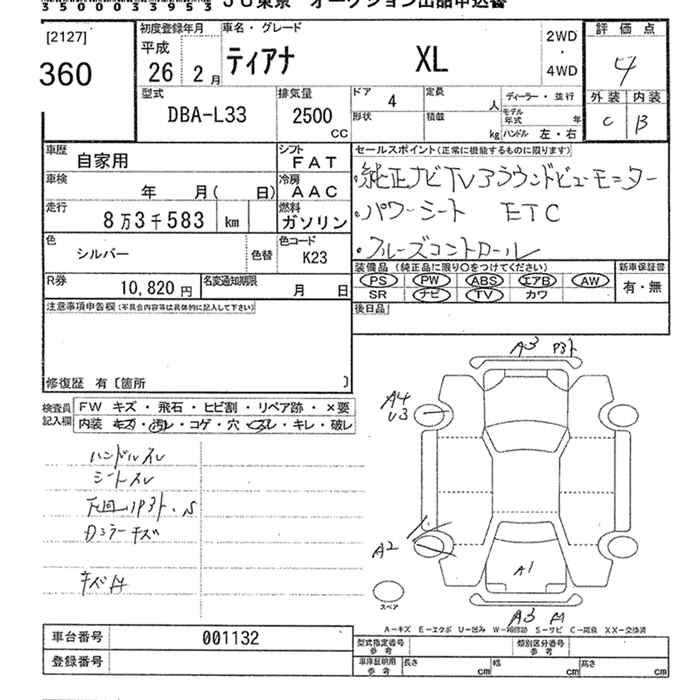 35000335953 JU東京 オークション出品申込書
[2127]
360
初度登録年月
平成
26 2月
車名・グレード
ティアナ XL
2WD
・
4WD
評価点
4
外装 内装
C B
型式
DBA-L33
排気量
2500
CC
ドア
4
形状
定員
人
積載
kg
ディーラー・並行
モデル年式 年
ハンドル 左・右
車歴
自家用
シフト
FAT
車検
年 月( 日)
冷房
AAC
走行
8万3千583 km
燃料
ガソリン
色
シルバー
色替
色コード
K23
R券
10,820円
名変通知期限
月 日
セールスポイント(正常に機能するものに限ります)
・純正ナビTVアラウンドビューモニター
・パワーシート ETC
・クルーズコントロール
装備品(純正品に限り○をつけてください)
PS PW ABS エアB AW
SR ナビ TV カワ
新車保証書
有・無
後日品
注意事項申告欄(不具合内容等は具体的に記入して下さい)
修復歴 有〔箇所 〕
検査員
記入欄
FW キズ・飛石・ヒビ割・リペア跡・×要
内装 キズ・汚レ・コゲ・穴・スレ・キレ・破レ
ハンドルスレ
シートスレ
Dミラーキズ
A3
A4
U3
A2
A1
A3
スペア
A-キズ E-エクボ U-凹み W-補修跡 S-サビ C-腐食 XX-交換済
車台番号 001132
登録番号
型式指定番号
参考
類別区分番号
参考
車庫証明用
参考
長さ cm
幅 cm
高さ cm